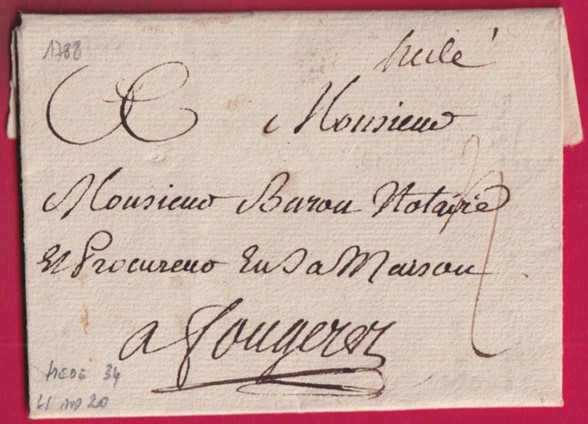 1788
hédé
A Monsieur
Monsieur Baron Notaire
Et Procureur En Sa Maison
a Fougeres
4
HEDE 34
L1 no 20